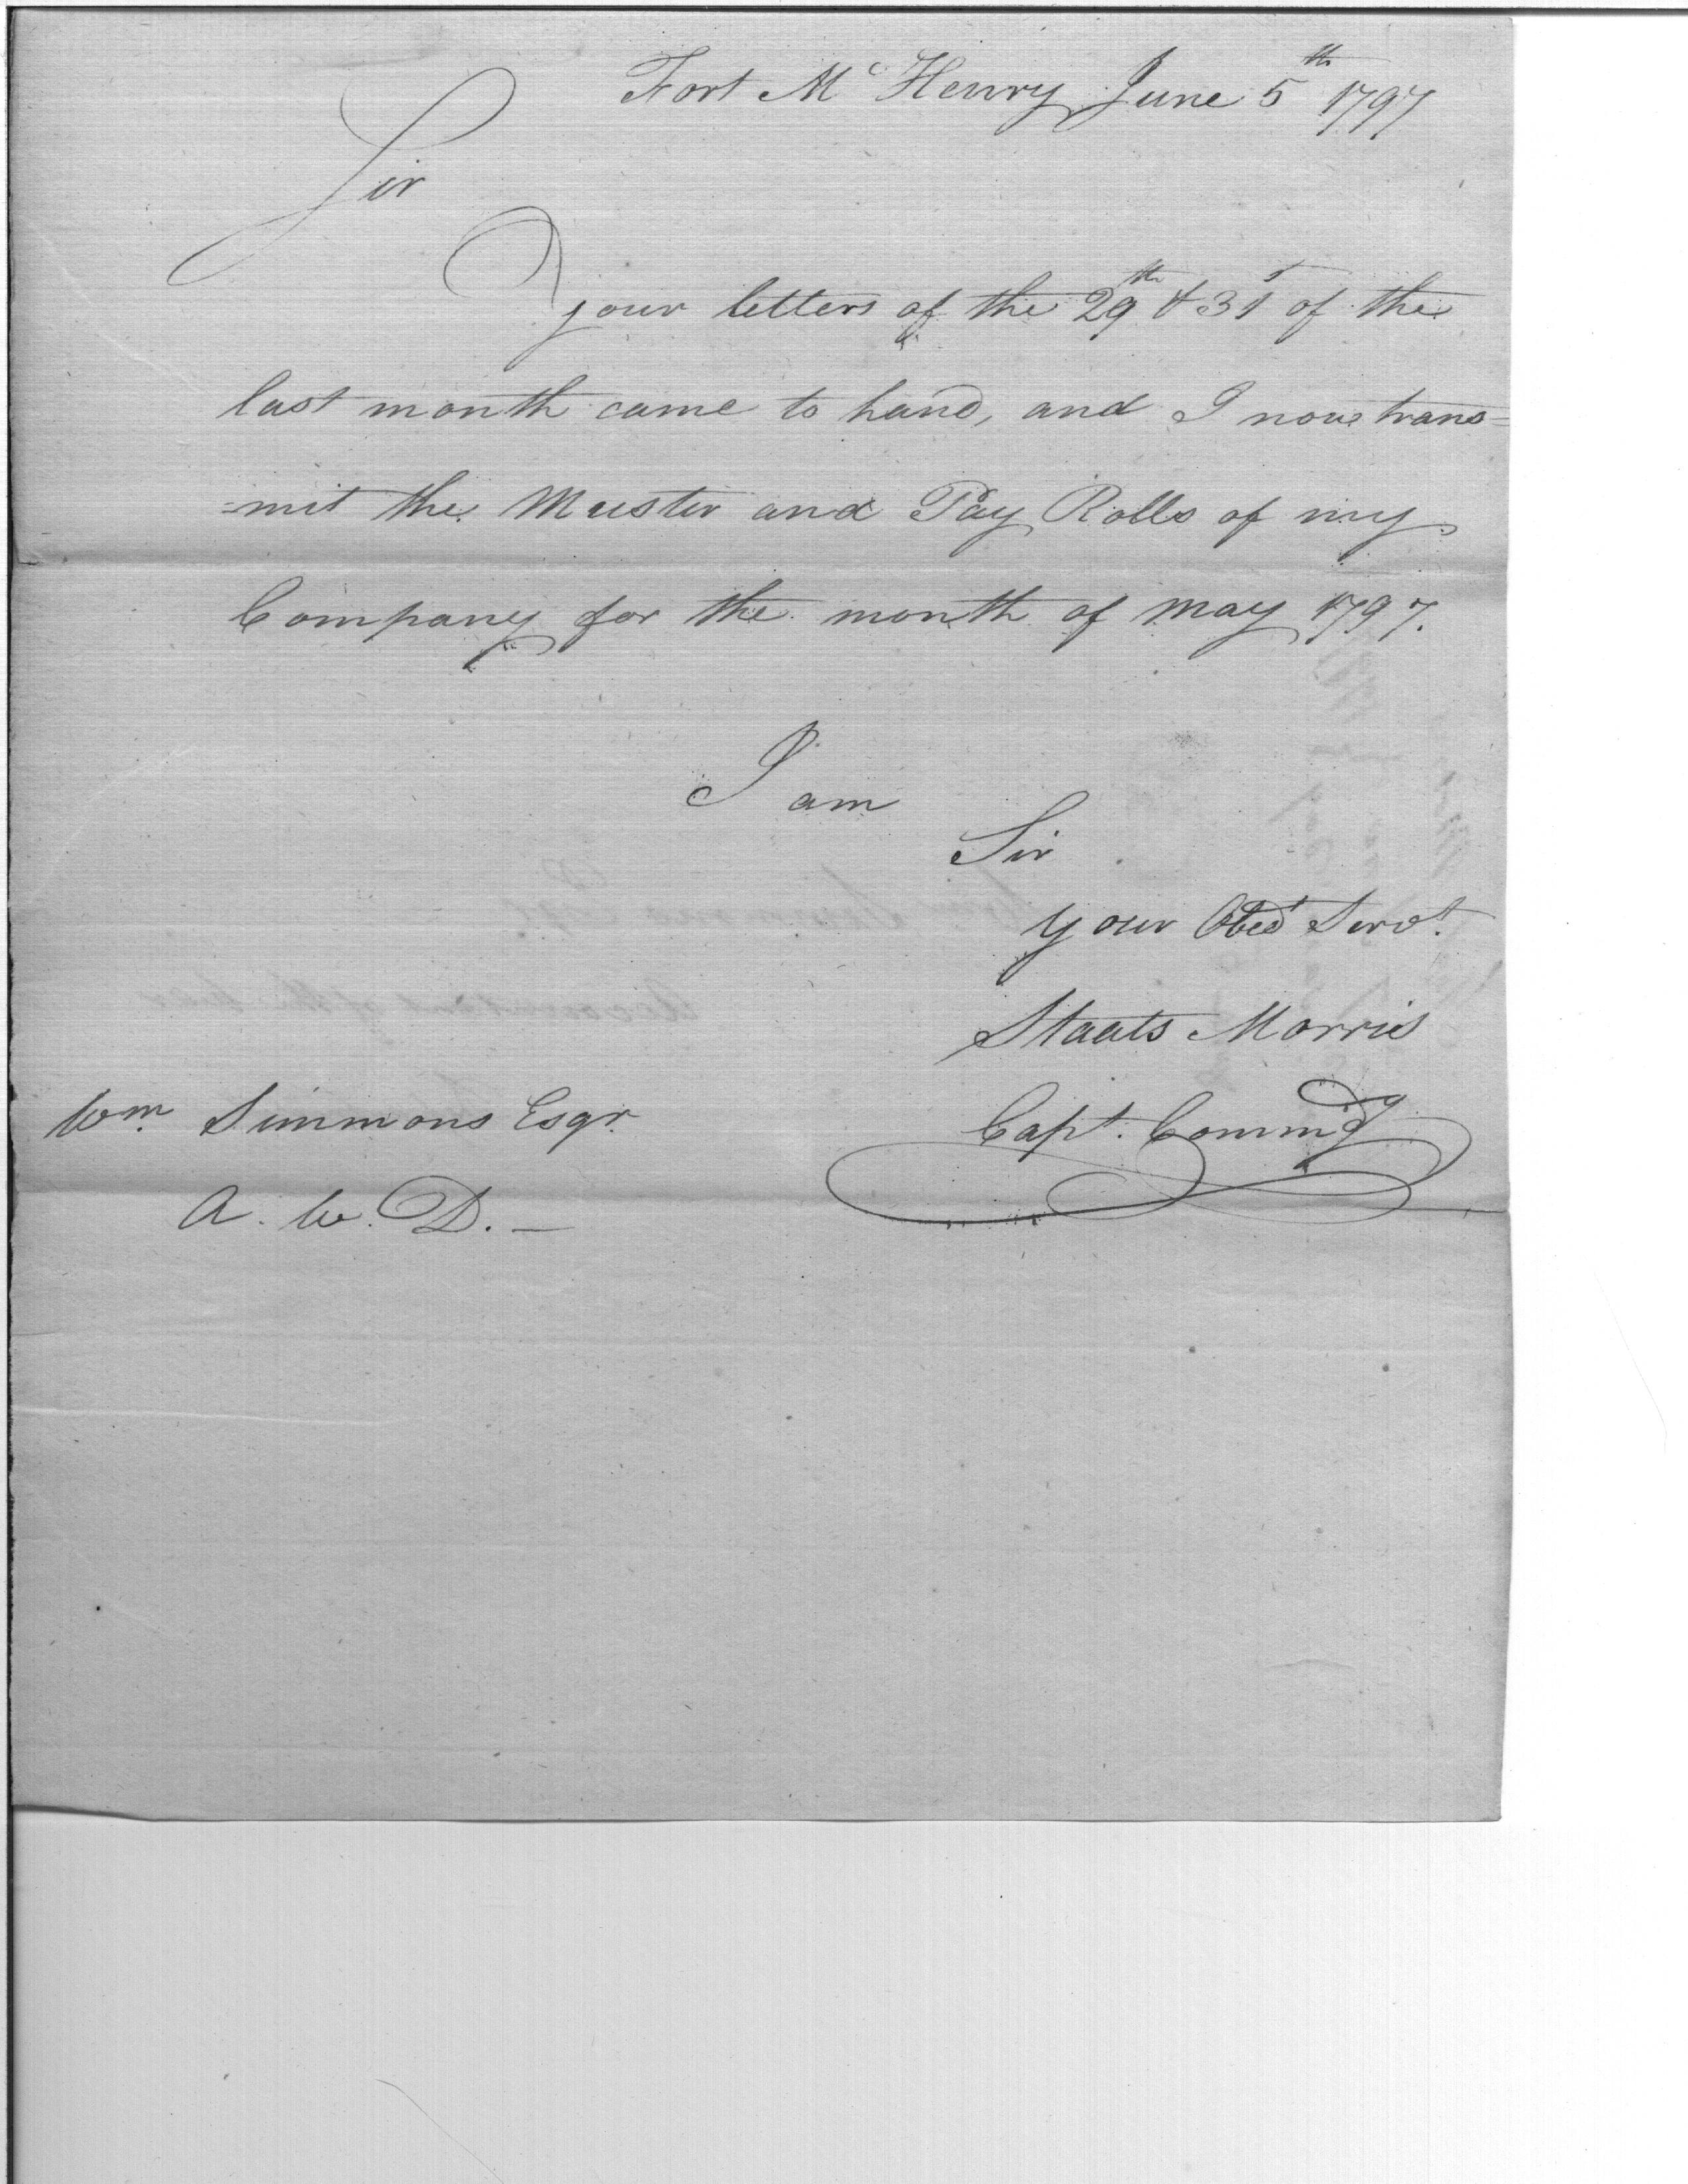 Fort Mc Henry June 5th 1797
Sir
your letters of the 29th & 31st of the
last month came to hand, and I now trans=
=mit the Muster and Pay Rolls of my
Company for the month of may 1797.
I am
Sir
your Obedt Servt.
Staats Morris
Capt. Commdg
Wm. Simmons Esqr.
A. W. D. —